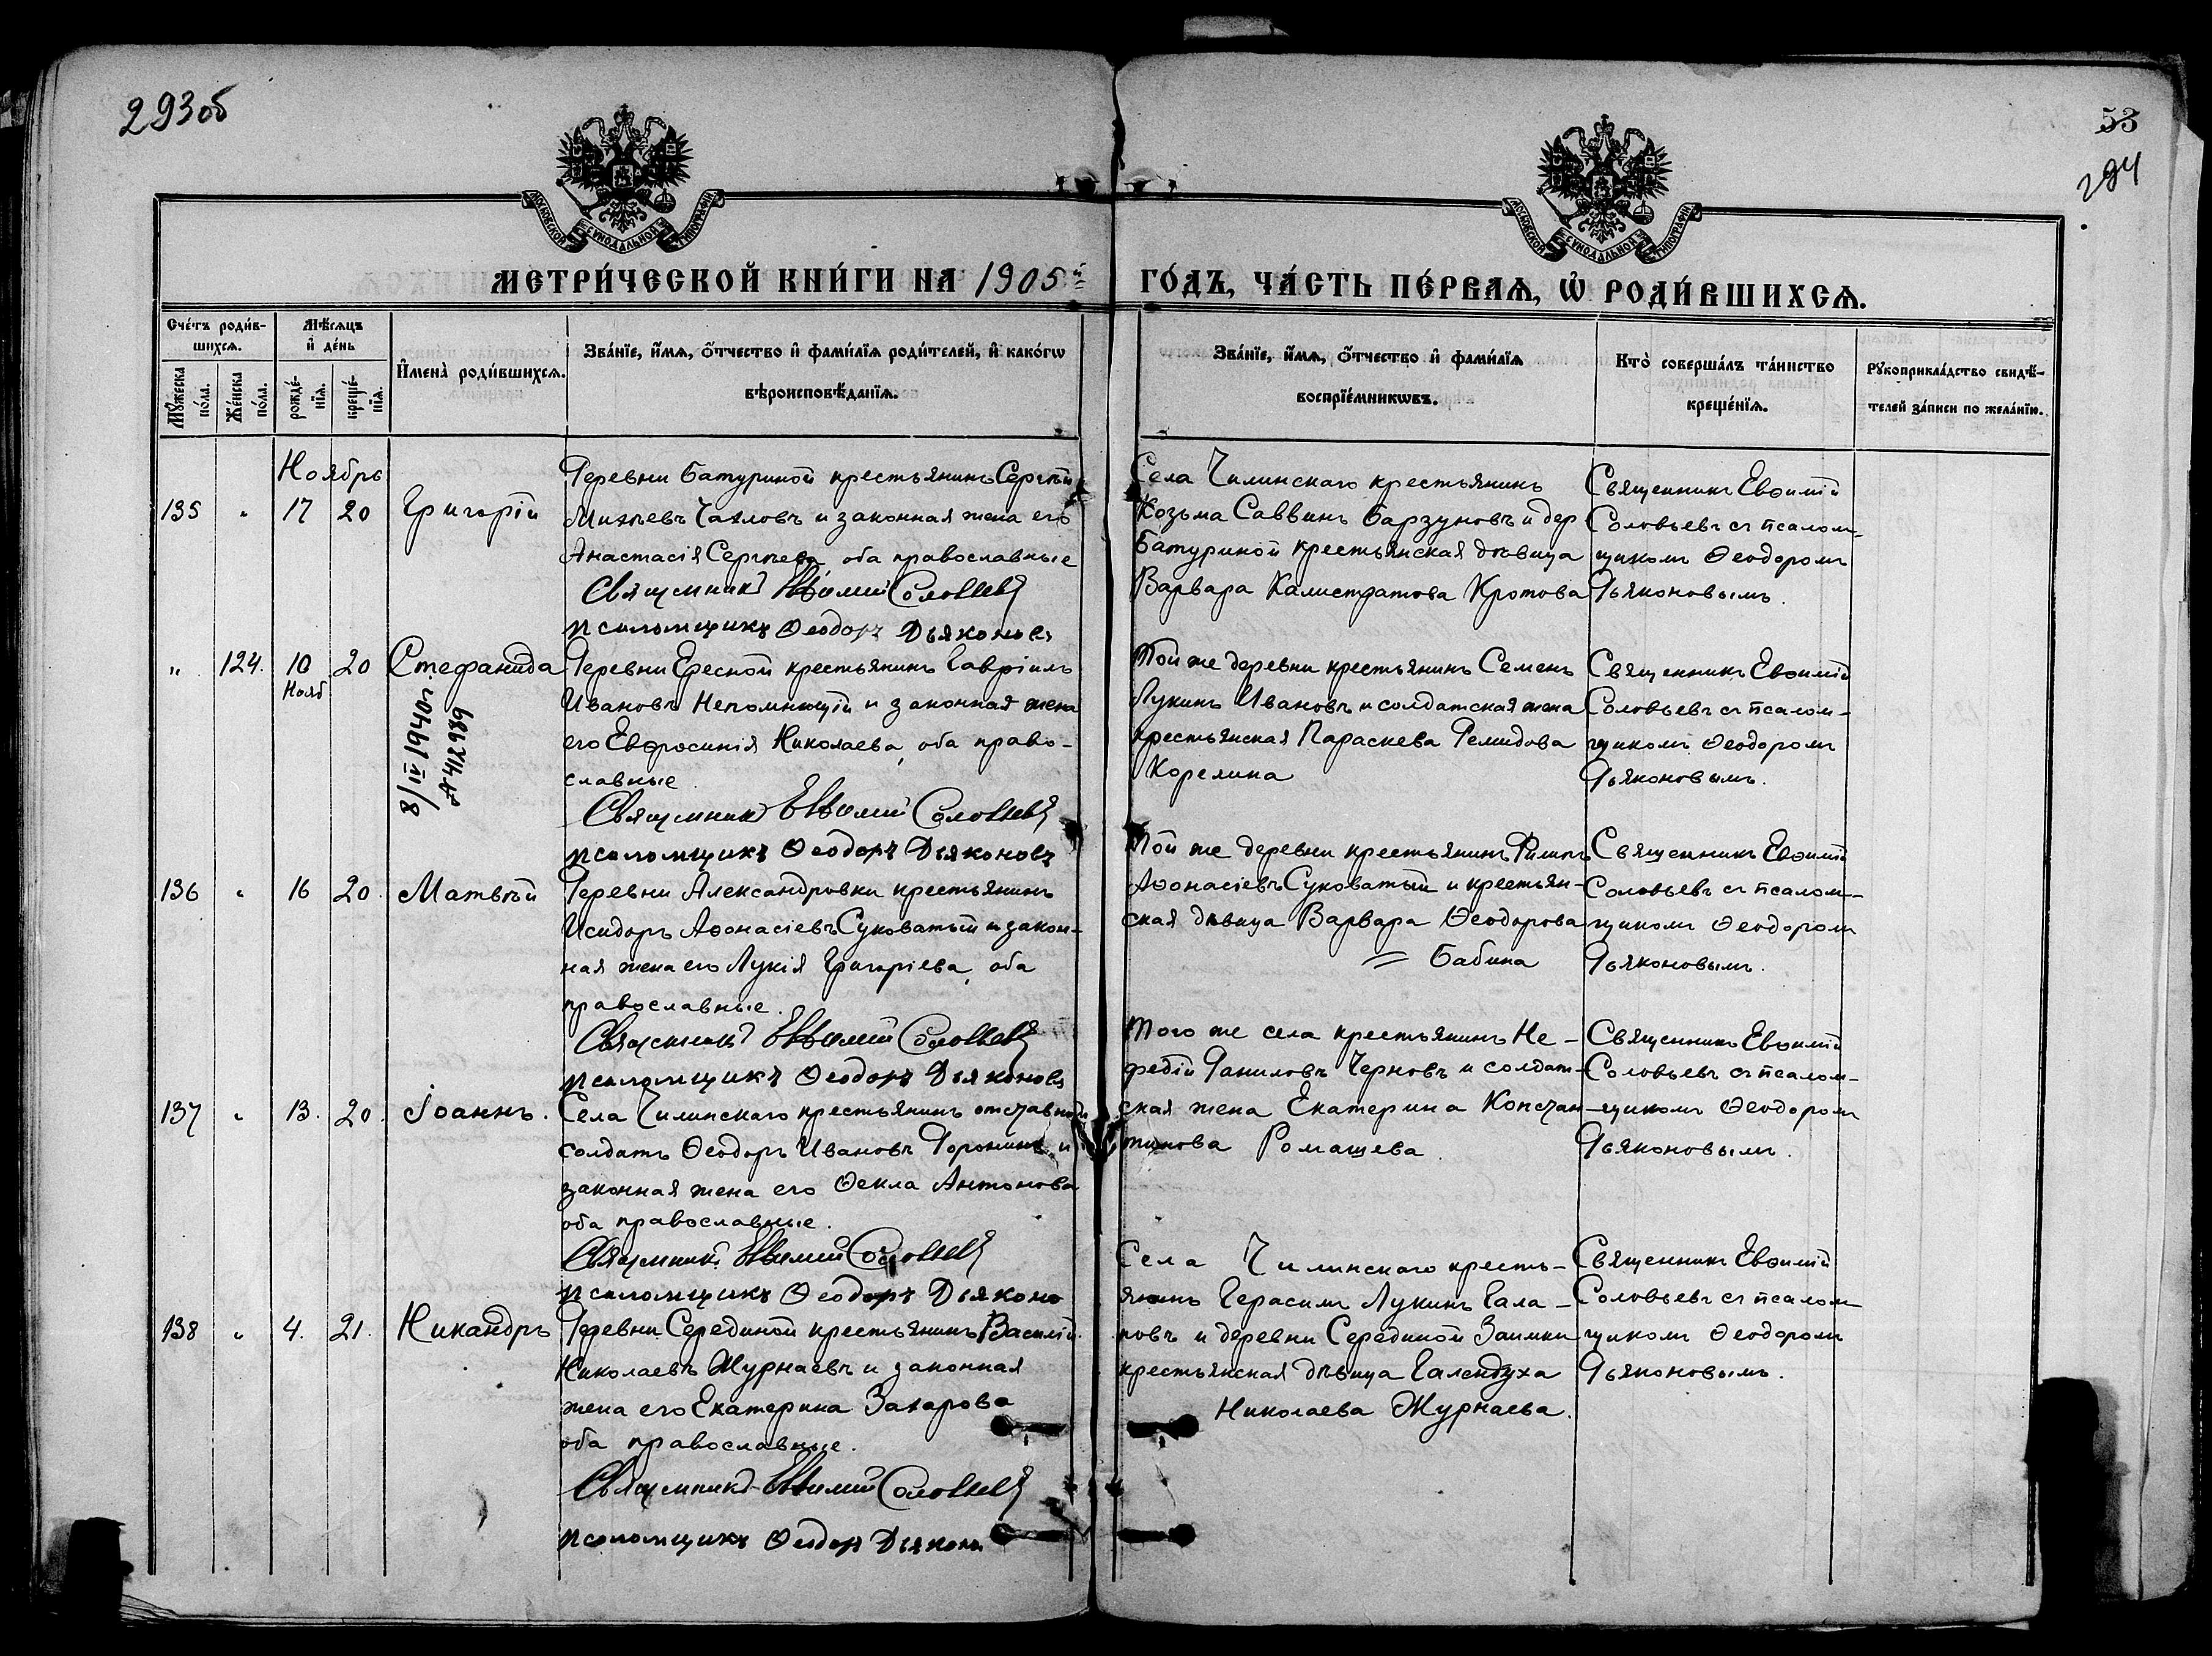 293об
53
294
МОСКОВСКОЙ СѴНОДАЛЬНОЙ ТИПОГРАФІИ
МОСКОВСКОЙ СѴНОДАЛЬНОЙ ТИПОГРАФІИ
МЕТРИ́ЧЕСКОЙ КНИ́ГИ НА 1905й ГО́ДЪ, ЧА́СТЬ ПЕ́РВАѦ, Ѡ҆ РОДИ́ВШИХСѦ.
Сче́тъ роди́в-
шихсѧ.
Мѣ́сѧцъ
и҆ де́нь
Мꙋ́жеска
по́ла.
Же́нска
по́ла.
рожде́-
нїѧ.
креще́-
нїѧ.
И҆мена̀ роди́вшихсѧ.
Зва́нїе, и҆́мѧ, ѻ҆́тчество и҆ фами́лїѧ роди́телей, и҆ како́гѡ
вѣроисповѣ́данїѧ.
Зва́нїе, и҆́мѧ, ѻ҆́тчество и҆ фами́лїѧ
воспрїе́мникѡвъ.
Кто̀ соверша́лъ та́инство
креще́нїѧ.
Рꙋкоприкла́дство свидѣ́-
телей за́писи по жела́нїю.
Ноябрь
135 " 17 20 Григорій
Деревни Батуриной крестьянинъ Сергѣй
Михѣевъ Чахловъ и законная жена его
Анастасія Сергѣева, оба православные
Священникъ Евѳимій Соловьевъ
псаломщикъ Ѳеодоръ Дьяконовъ
Села Чилинскаго крестьянинъ
Козьма Саввинъ Барзуновъ и дер.
Батуриной крестьянская дѣвица
Варвара Калистратова Кротова
Священникъ Евѳимій
Соловьевъ съ псалом-
щикомъ Ѳеодоромъ
Дьяконовымъ.
" 124. 10 20 Стефанида
Нояб.
8/IV 1940г.
412989
Деревни Ересной крестьянинъ Гавріилъ
Ивановъ Непомнющій и законная жена
его Евфросинія Николаева, оба право-
славные.
Священникъ Евѳимій Соловьевъ
псаломщикъ Ѳеодоръ Дьяконовъ
Той же деревни крестьянинъ Семенъ
Лукинъ Ивановъ и солдатская жена
крестьянская Параскева Демидова
Корелина
Священникъ Евѳимій
Соловьевъ съ псалом-
щикомъ Ѳеодоромъ
Дьяконовымъ.
136 " 16 20. Матвѣй
Деревни Александровки крестьянинъ
Исидоръ Аѳонасіевъ Суковатый и закон-
ная жена его Лукія Григоріева, оба
православные.
Священникъ Евѳимій Соловьевъ
псаломщикъ Ѳеодоръ Дьяконовъ
Той же деревни крестьянинъ Филипъ
Аѳонасіевъ Суковатый и крестьян-
ская дѣвица Варвара Ѳеодорова
= Бабина
Священникъ Евѳимій
Соловьевъ съ псалом-
щикомъ Ѳеодоромъ
Дьяконовымъ.
137 " 13. 20. Іоаннъ.
Села Чилинскаго крестьянинъ отставной
солдатъ Ѳеодоръ Ивановъ Доронинъ и
законная жена его Ѳекла Антонова
оба православные.
Священникъ Евѳимій Соловьевъ
псаломщикъ Ѳеодоръ Дьяконо
Того же села крестьянинъ Не-
федій Даниловъ Черновъ и солдат-
ская жена Екатерина Констан-
тинова Ромашева.
Священникъ Евѳимій
Соловьевъ съ псалом-
щикомъ Ѳеодоромъ
Дьяконовымъ.
138 " 4. 21. Никандръ
Деревни Серединой крестьянинъ Василій
Николаевъ Журнаевъ и законная
жена его Екатерина Захарова
оба православные.
Священникъ Евѳимій Соловьевъ
псаломщикъ Ѳеодоръ Дьяконо
Села Чилинскаго кресть-
янинъ Герасимъ Лукинъ Гала-
новъ и деревни Серединой Заимки
крестьянская дѣвица Галендуха
Николаева Журнаева.
Священникъ Евѳимій
Соловьевъ съ псалом
щикомъ Ѳеодоромъ
Дьяконовымъ.